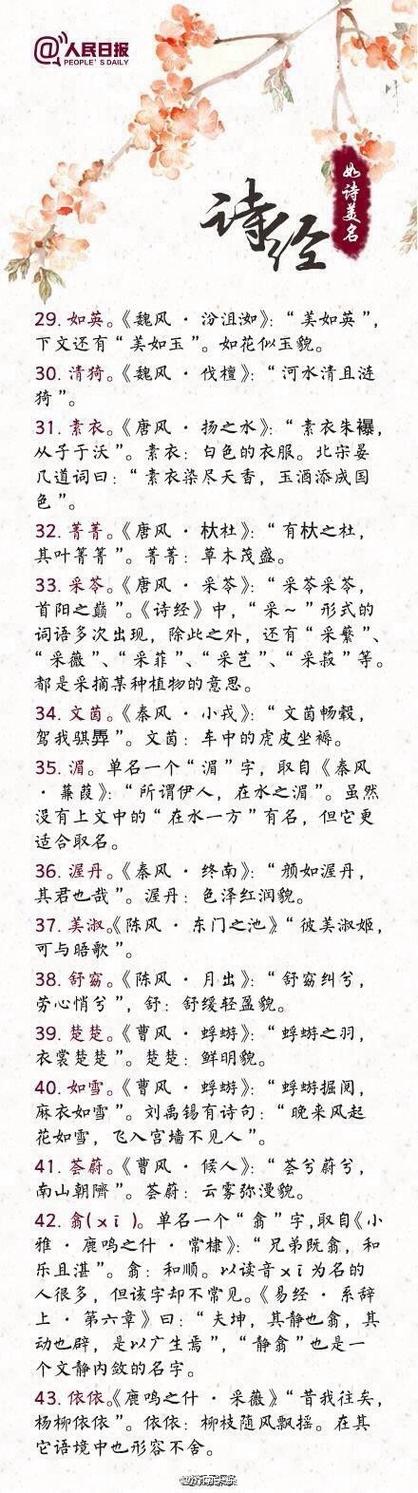 人民日报
PEOPLE'S DAILY
诗经
如诗美名
29. 如英。《魏风 · 汾沮洳》：“美如英”，
下文还有“美如玉”。如花似玉貌。
30. 清猗。《魏风 · 伐檀》：“河水清且涟
猗”。
31. 素衣。《唐风 · 扬之水》：“素衣朱襮，
从子于沃”。素衣：白色的衣服。北宋晏
几道词曰：“素衣染尽天香，玉酒添成国
色”。
32. 菁菁。《唐风 · 杕杜》：“有杕之杜，
其叶菁菁”。菁菁：草木茂盛。
33. 采苓。《唐风 · 采苓》：“采苓采苓，
首阳之巅”。《诗经》中，“采～”形式的
词语多次出现，除此之外，还有“采蘩”、
“采薇”、“采菲”、“采芑”、“采菽”等。
都是采摘某种植物的意思。
34. 文茵。《秦风 · 小戎》：“文茵畅毂，
驾我骐馵”。文茵：车中的虎皮坐褥。
35. 湄。单名一个“湄”字，取自《秦风
· 蒹葭》：“所谓伊人，在水之湄”。虽然
没有上文中的“在水一方”有名，但它更
适合取名。
36. 渥丹。《秦风 · 终南》：“颜如渥丹，
其君也哉”。渥丹：色泽红润貌。
37. 美淑。《陈风 · 东门之池》“彼美淑姬，
可与晤歌”。
38. 舒窈。《陈风 · 月出》：“舒窈纠兮，
劳心悄兮”，舒：舒缓轻盈貌。
39. 楚楚。《曹风 · 蜉蝣》：“蜉蝣之羽，
衣裳楚楚”。楚楚：鲜明貌。
40. 如雪。《曹风 · 蜉蝣》：“蜉蝣掘阅，
麻衣如雪”。刘禹锡有诗句：“晚来风起
花如雪，飞入宫墙不见人”。
41. 荟蔚。《曹风 · 候人》：“荟兮蔚兮，
南山朝隮”。荟蔚：云雾弥漫貌。
42. 翕(xī)。单名一个“翕”字，取自《小
雅 · 鹿鸣之什 · 常棣》：“兄弟既翕，和
乐且湛”。翕：和顺。以读音xī为名的
人很多，但该字却不常见。《易经 · 系辞
上 · 第六章》曰：“夫坤，其静也翕，其
动也辟，是以广生焉”，“静翕”也是一
个文静内敛的名字。
43. 依依。《鹿鸣之什 · 采薇》“昔我往矣，
杨柳依依”。依依：柳枝随风飘摇。在其
它语境中也形容不舍。